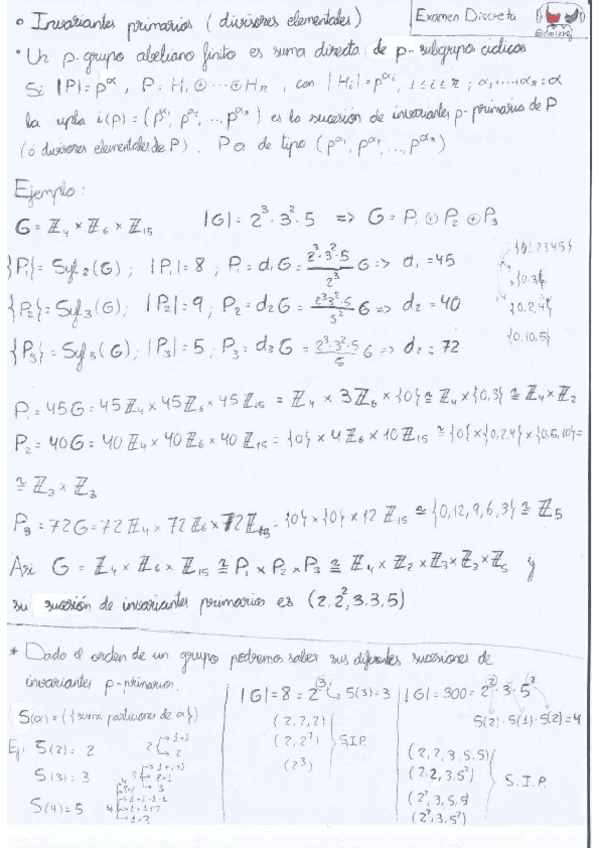 • Invariantes primarios (divisores elementales)
Examen Discreta
• Un p-grupo abeliano finito es suma directa de p-subgrupo cíclicos
Si |P|=p^α, P=H₁⊕⋯⊕Hₙ, con |Hᵢ|=p^αᵢ, 1≤i≤n; α₁+⋯+αₙ=α
la upla i(P)=(p^α₁, p^α₂, ..., p^αₙ) es la sucesión de invariantes p-primarios de P
(ó divisores elementales de P). P es de tipo (p^α₁, p^α₂, ..., p^αₙ)
Ejemplo:
G = ℤ₄ × ℤ₆ × ℤ₁₅ |G| = 2³·3²·5 => G = P₁ ⊕ P₂ ⊕ P₃
{P₁} = Syl₂(G); |P₁| = 8; P₁ = d₁G = 2³·3²·5/2³ G => d₁ = 45
{P₂} = Syl₃(G); |P₂| = 9; P₂ = d₂G = 2³3²·5/3² G => d₂ = 40
{P₃} = Syl₅(G); |P₃| = 5; P₃ = d₃G = 2³·3²·5/5 G => d₂ = 72
{0,1,2,3,4,5}
{0,3}
{0,2,4}
{0,10,5}
P₁ = 45G = 45ℤ₄ × 45ℤ₆ × 45ℤ₁₅ = ℤ₄ × 3ℤ₆ × {0} ≅ ℤ₄ × {0,3} ≅ ℤ₄ × ℤ₂
P₂ = 40G = 40ℤ₄ × 40ℤ₆ × 40ℤ₁₅ = {0} × 4ℤ₆ × 10ℤ₁₅ ≅ {0} × {0,2,4} × {0,5,10} =
≅ ℤ₃ × ℤ₃
P₃ = 72G = 72ℤ₄ × 72ℤ₆ × 72ℤ₁₅ = {0} × {0} × 12ℤ₁₅ ≅ {0,12,9,6,3} ≅ ℤ₅
Así G = ℤ₄ × ℤ₆ × ℤ₁₅ ≅ P₁ × P₂ × P₃ ≅ ℤ₄ × ℤ₂ × ℤ₃ × ℤ₃ × ℤ₅ y
su sucesión de invariantes primarios es (2,2²,3,3,5)
* Dado el orden de un grupo podremos saber sus diferentes sucesiones de
invariantes p-primarios.
S(α) = ({suma particiones de α})
Ej: S(2) = 2
2 1+1
S(3) = 3
S(4) = 5
|G| = 8 = 2³ → S(3) = 3
(2,2,2)
(2,2²)
(2³)
S.I.P.
|G| = 300 = 2²·3·5²
S(2)·S(1)·S(2) = 4
(2,2,3,5,5)
(2,2,3,5²)
(2²,3,5,5)
(2²,3,5²)
S.I.P.